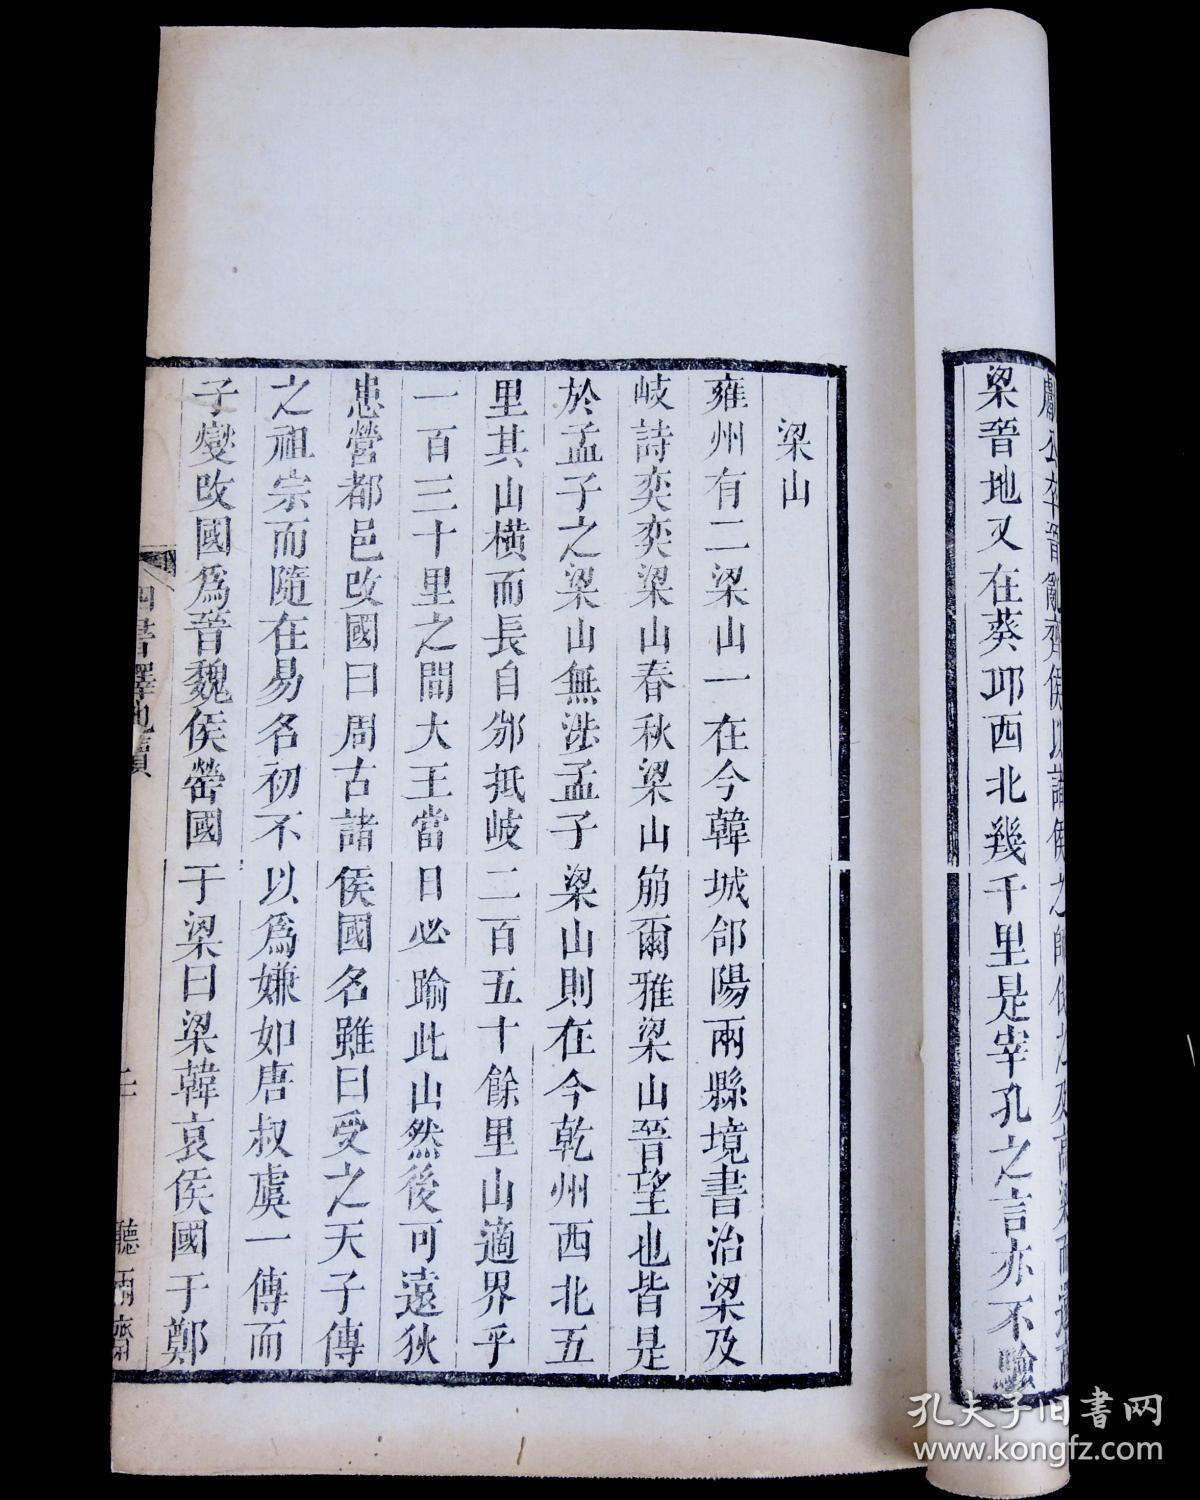 獻公卒晉亂齊侯以諸侯之師伐之及高梁而還
梁晉地又在葵邱西北幾千里是宰孔之言亦不驗
梁山
雍州有二梁山一在今韓城郃陽兩縣境書治梁及
岐詩奕奕梁山春秋梁山崩爾雅梁山晉望也皆是
於孟子之梁山無涉孟子梁山則在今乾州西北五
里其山橫而長自邠抵岐二百五十餘里山適界乎
一百三十里之間大王當日必踰此山然後可遠狄
患營都邑改國曰周古諸侯國名雖曰受之天子傳
之祖宗而隨在易名初不以為嫌如唐叔虞一傳而
子燮改國為晉魏侯罃國于梁曰梁韓哀侯國于鄭
四書釋地續
三
聽雨齋
孔夫子旧書网
www.kongfz.com